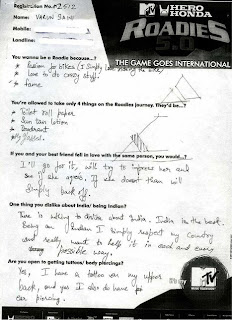 Registration No. #2512
MTV HERO HONDA
ROADIES
5.0
THE GAME GOES INTERNATIONAL
Name:
Mobile:
Landline:
You wanna be a Roadie because...?
* Passion for bikes (I simply love
* love to do crazy stuff.
* fame
You're allowed to take only 4 things on the Roadies journey. They'd be...?
* Toilet roll paper
* Sun tan lotion
* Deodrant
If you and your best friend fell in love with the same person, you would...?
I'll go for it, will try to impress her, and
see if she agrees. If she doesn't then will
simply back off.
One thing you dislike about India/ being Indian?
There is nothing to dislike about India. India is the best.
Being an Indian I simply respect my country
and really want to help it in each and every
possible way.
Are you open to getting tattoos/ body piercings?
Yes, I have a tattoo on my upper
back, and yes I also do have
Ear piercing.
MTV
MUSIC TELEVISION